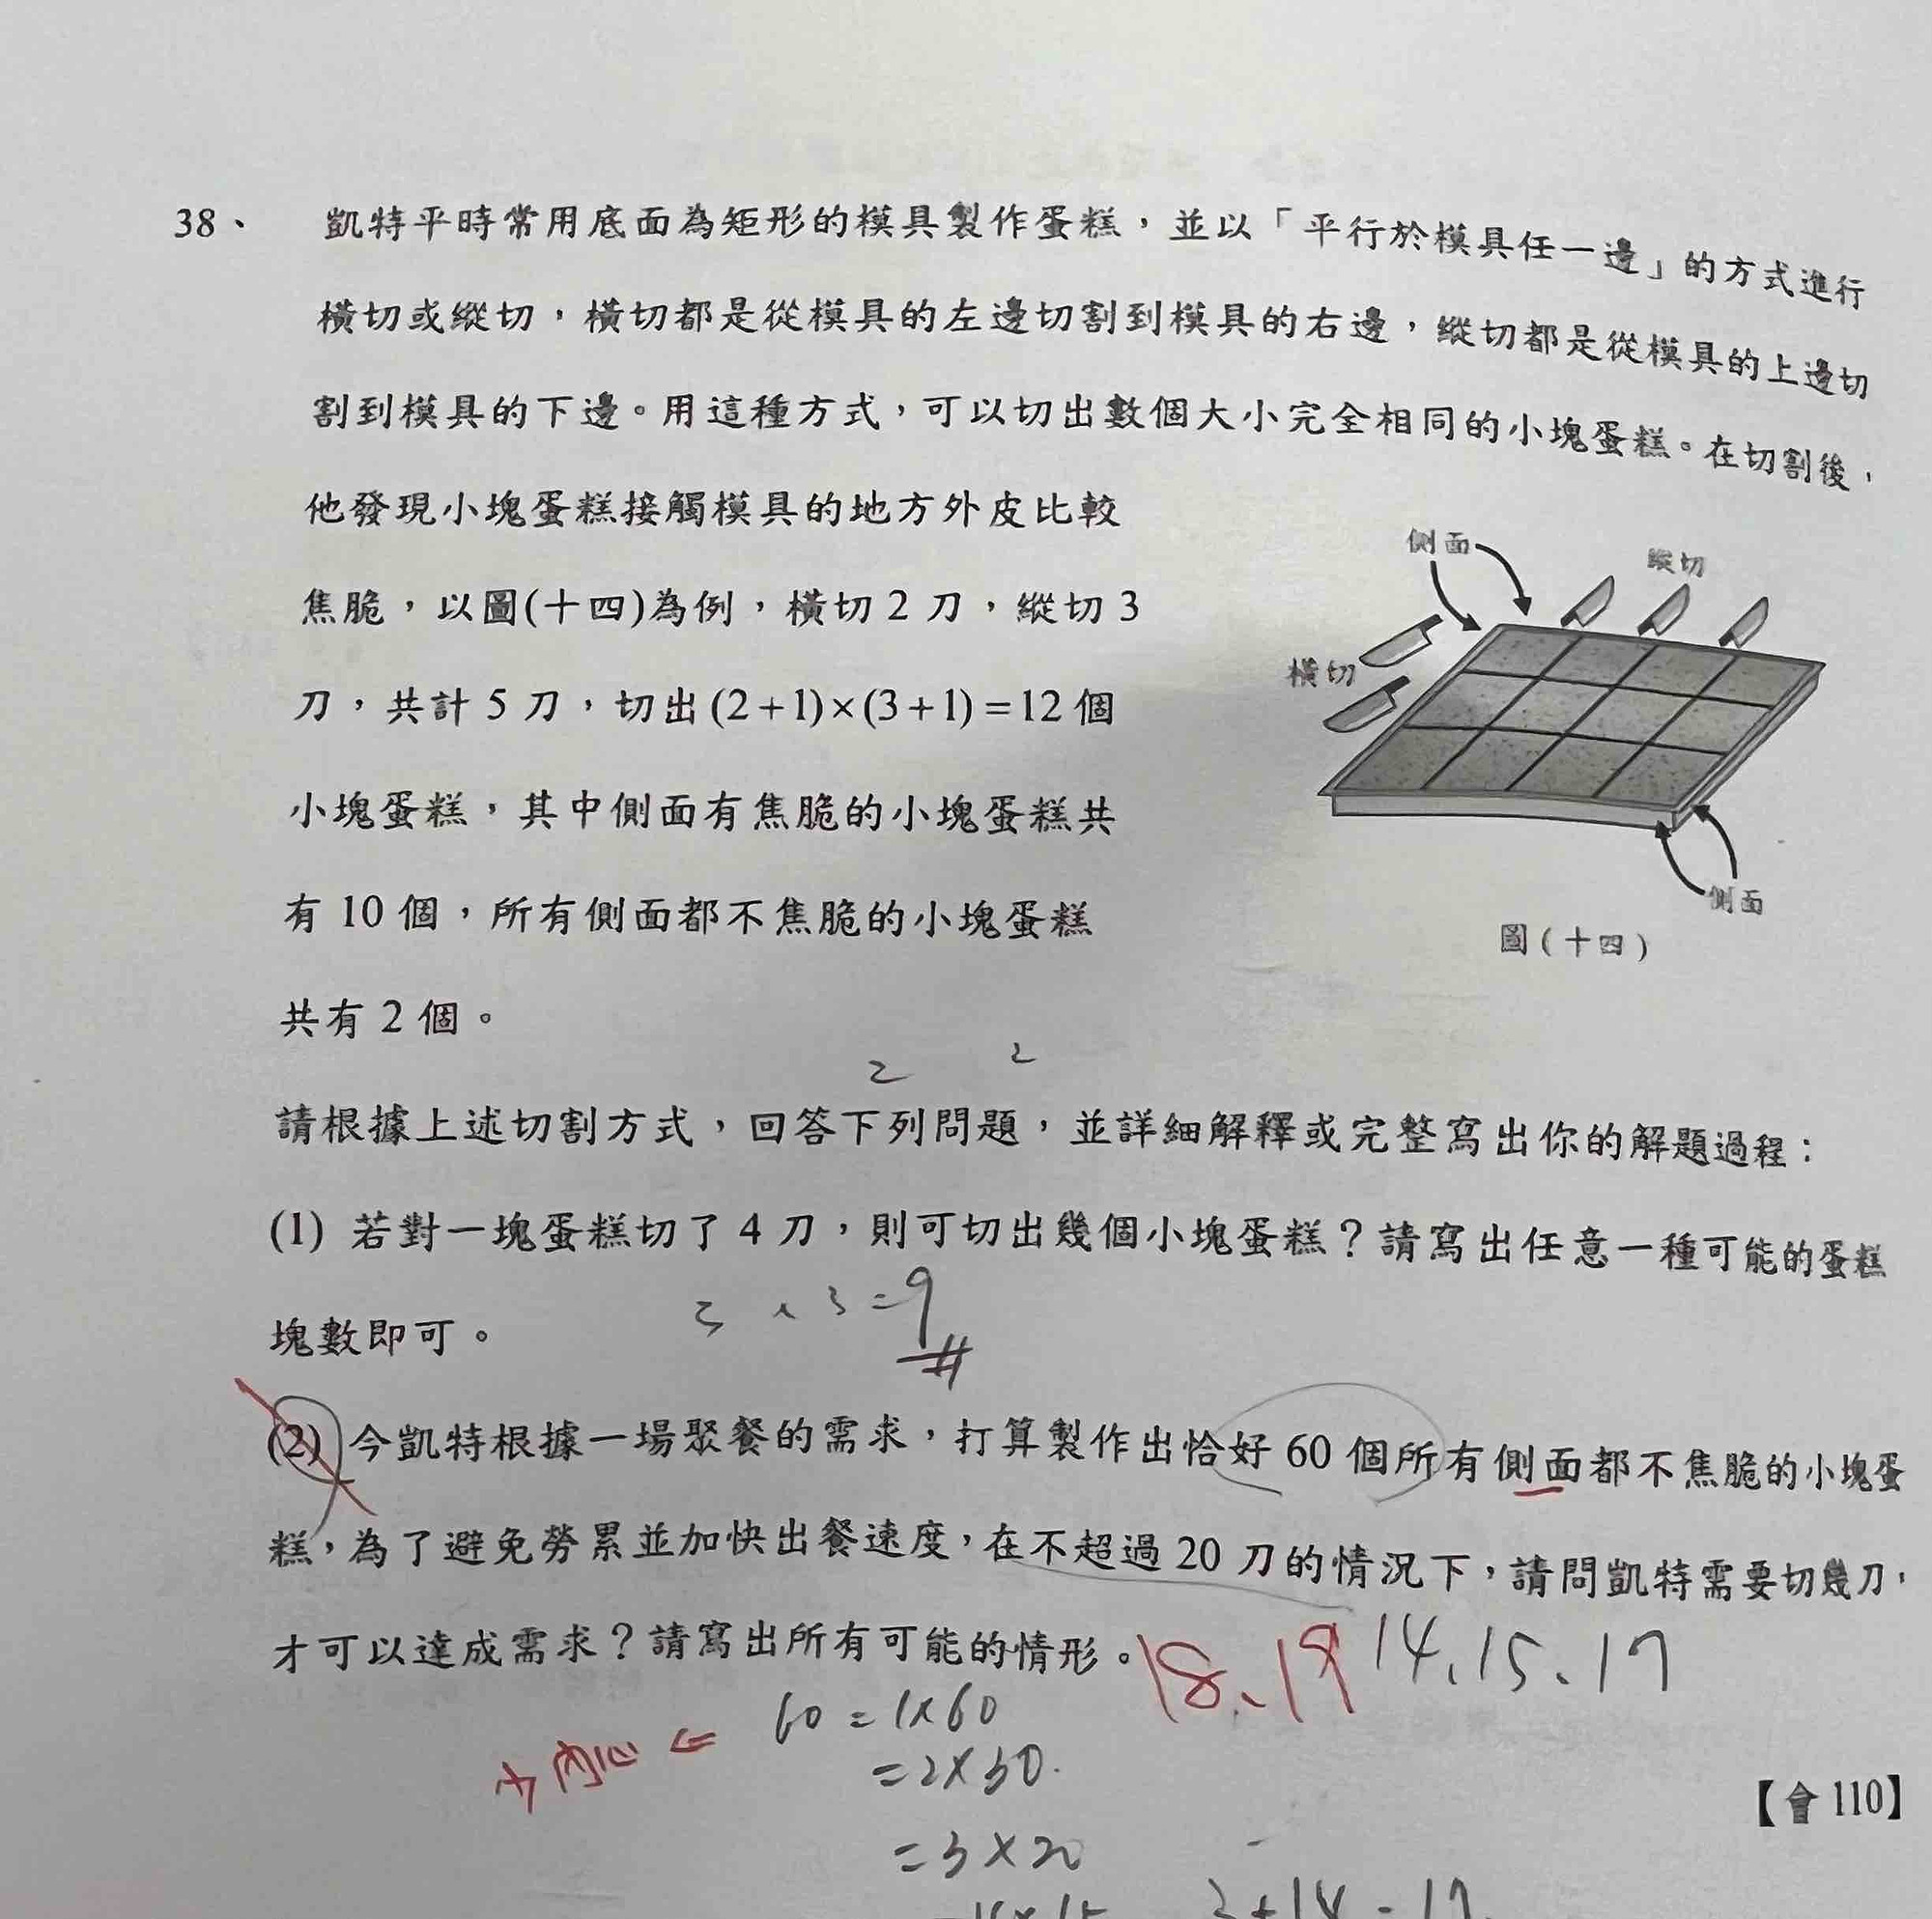 38、 凱特平時常用底面為矩形的模具製作蛋糕，並以「平行於模具任一邊」的方式進行
橫切或縱切，橫切都是從模具的左邊切割到模具的右邊，縱切都是從模具的上邊切
割到模具的下邊。用這種方式，可以切出數個大小完全相同的小塊蛋糕。在切割後，
他發現小塊蛋糕接觸模具的地方外皮比較
焦脆，以圖(十四)為例，橫切 2 刀，縱切 3
刀，共計 5 刀，切出 (2+1)×(3+1)=12 個
小塊蛋糕，其中側面有焦脆的小塊蛋糕共
有 10 個，所有側面都不焦脆的小塊蛋糕
共有 2 個。
側面
縱切
橫切
側面
圖(十四)
2 2
請根據上述切割方式，回答下列問題，並詳細解釋或完整寫出你的解題過程：
(1) 若對一塊蛋糕切了 4 刀，則可切出幾個小塊蛋糕？請寫出任意一種可能的蛋糕
塊數即可。
3 × 3 = 9 #
(2) 今凱特根據一場聚餐的需求，打算製作出恰好 60 個所有側面都不焦脆的小塊蛋
糕，為了避免勞累並加快出餐速度，在不超過 20 刀的情況下，請問凱特需要切幾刀，
才可以達成需求？請寫出所有可能的情形。
18、19 14、15、17
60 = 1×60
= 2×30.
【會 110】
= 3×20
3+14=17